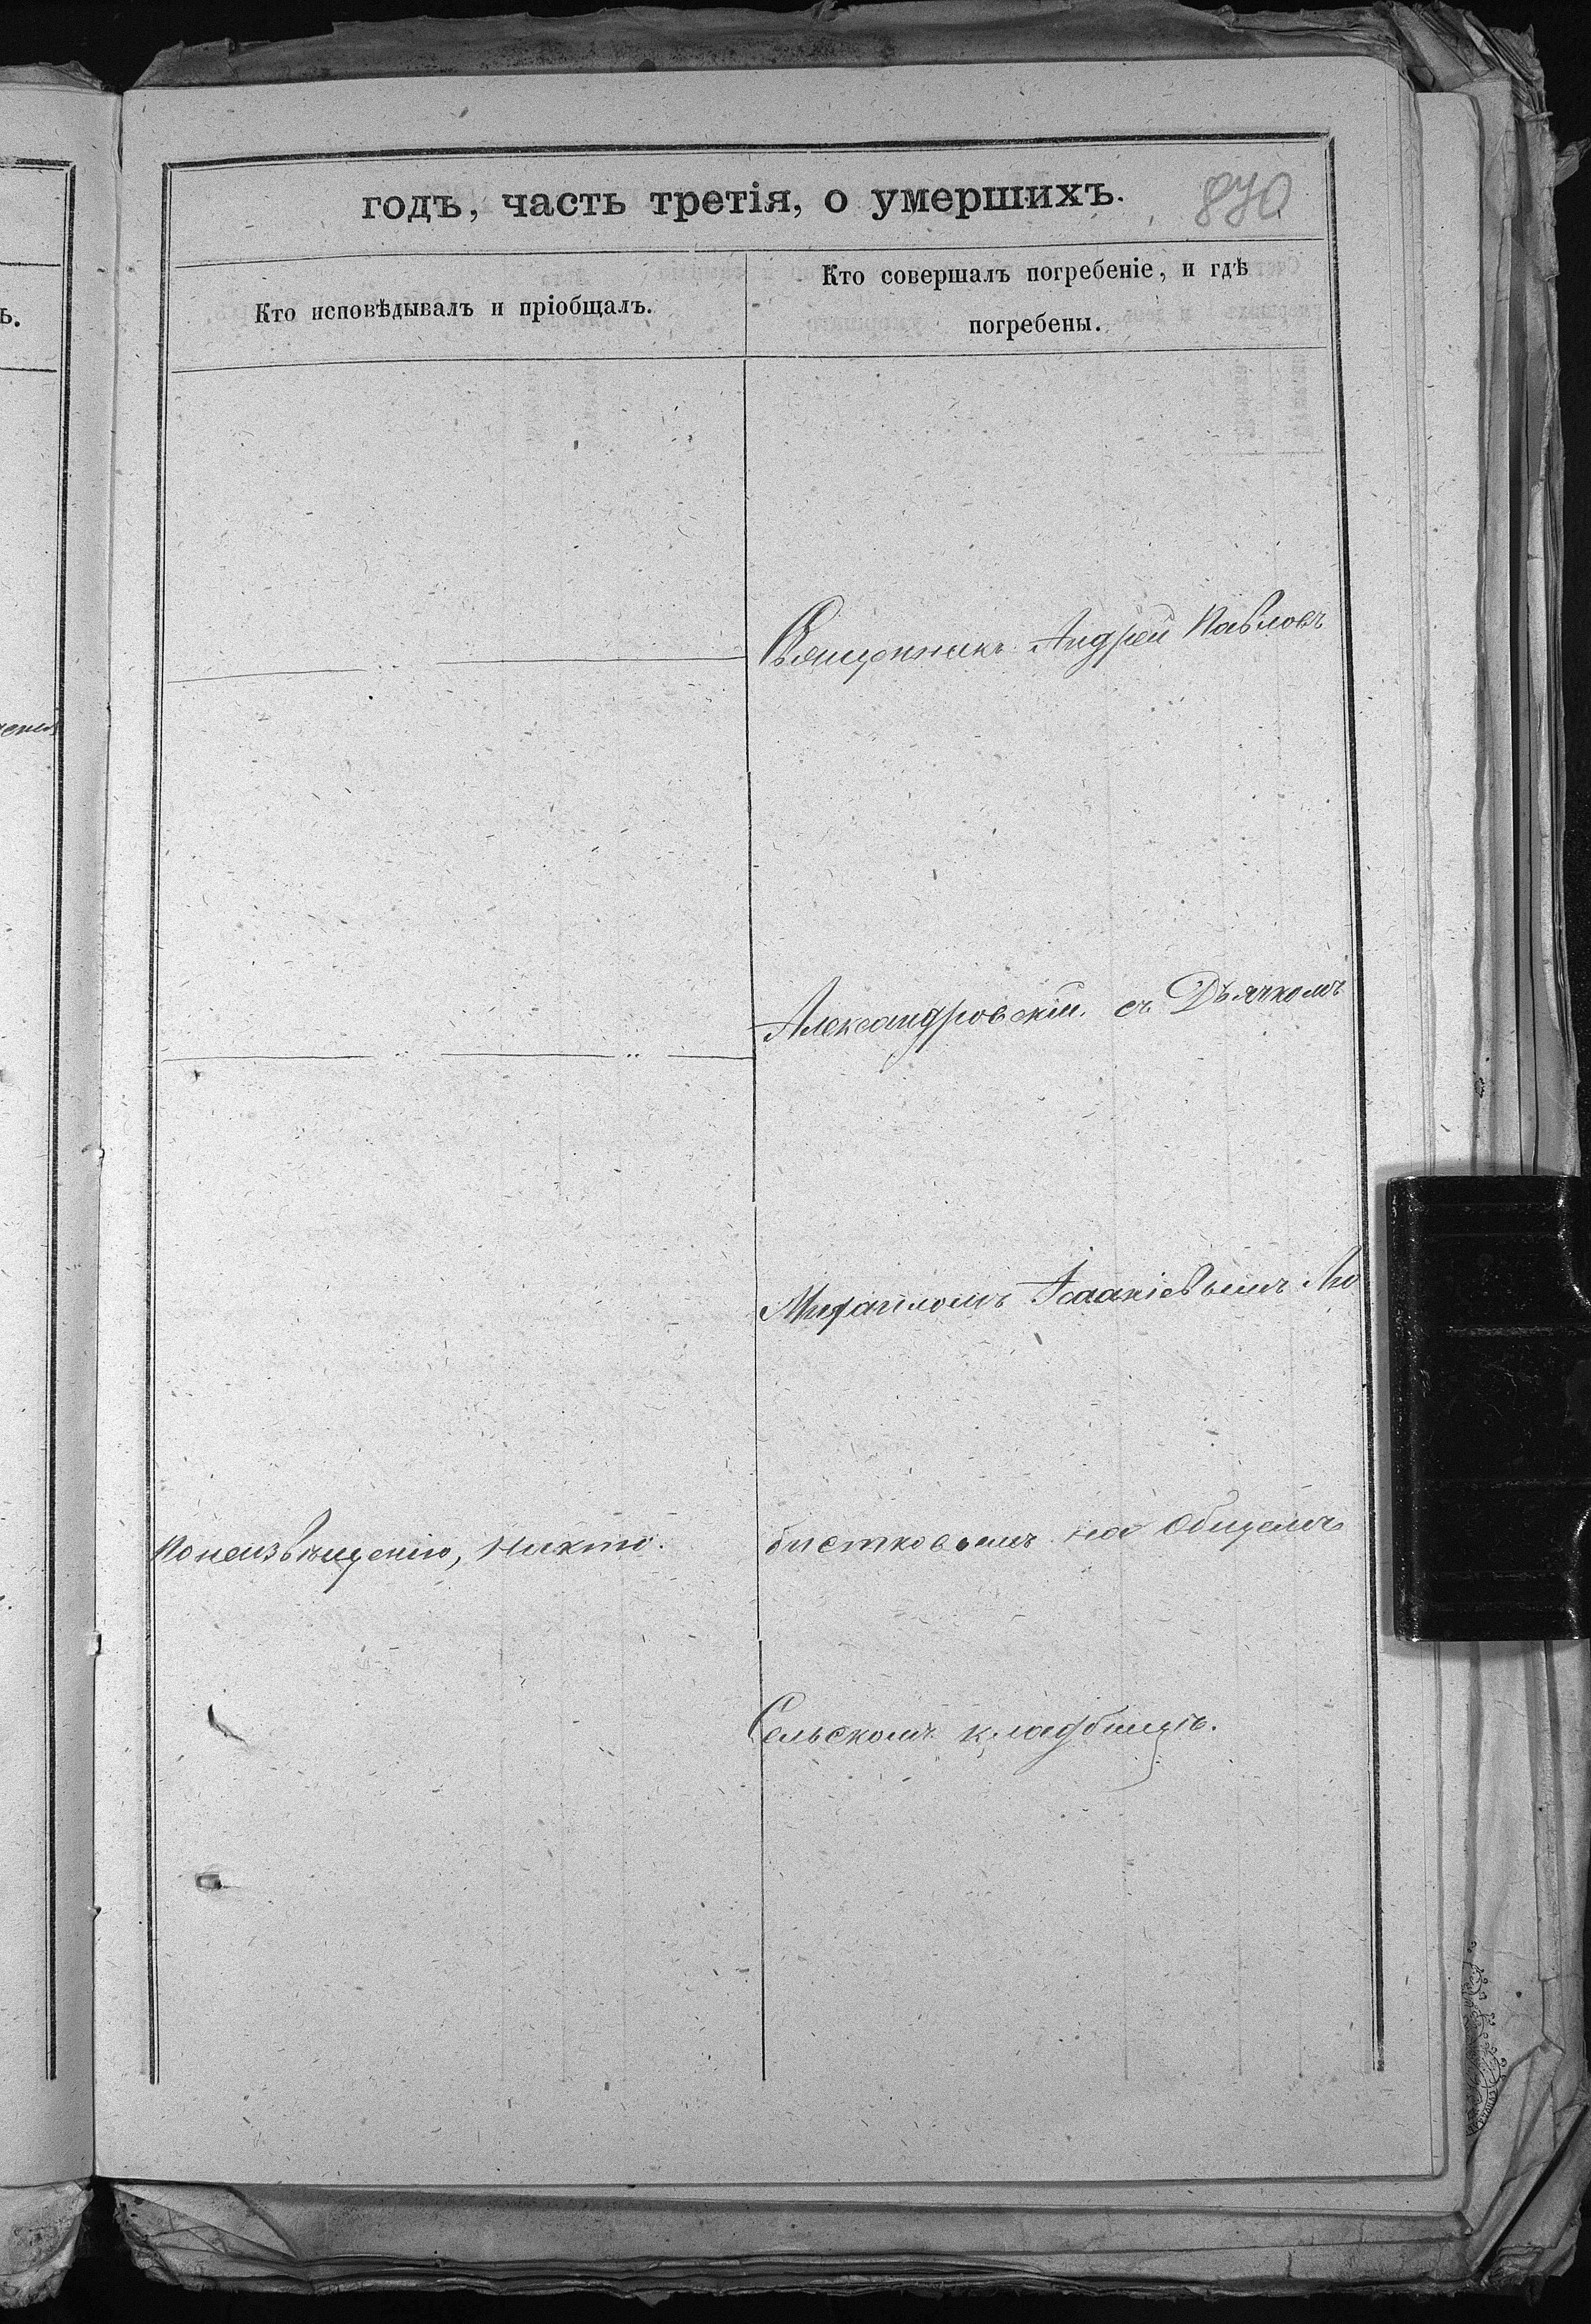 годъ, часть третія, о умершихъ.
870
Кто исповѣдывалъ и пріобщалъ.
Кто совершалъ погребеніе, и гдѣ
погребены.
Священникъ Андрей Павловъ
Александровскій съ Дьячкомъ
Михаиломъ Ісаакіевымъ Ло
По неизвѣщенію, никто.
бистковымъ на общемъ
Сельскомъ кладбищѣ.